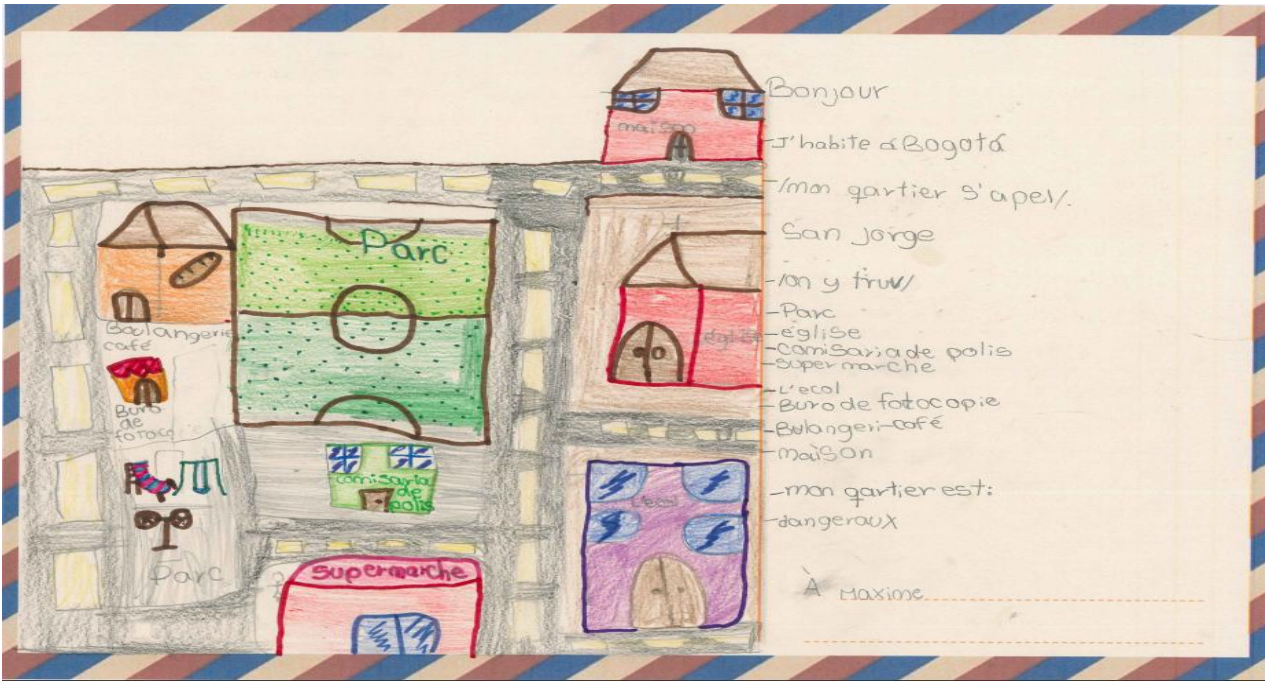 maison
Parc
Boulangerie
café
Buro
de
fotoco
comisaria
de
polis
Parc
supermarche
église
L'ecol
Bonjour
-J'habite á Bogotá
-/mon qartier s'apel/.
San Jorge
-/on y truv/
-Parc
-église
-comisaria de polis
-super marche
-L'ecol
-Buro de fotocopie
-Bulangeri-café
-maison
-mon qartier est:
-dangeraux
À Maxime